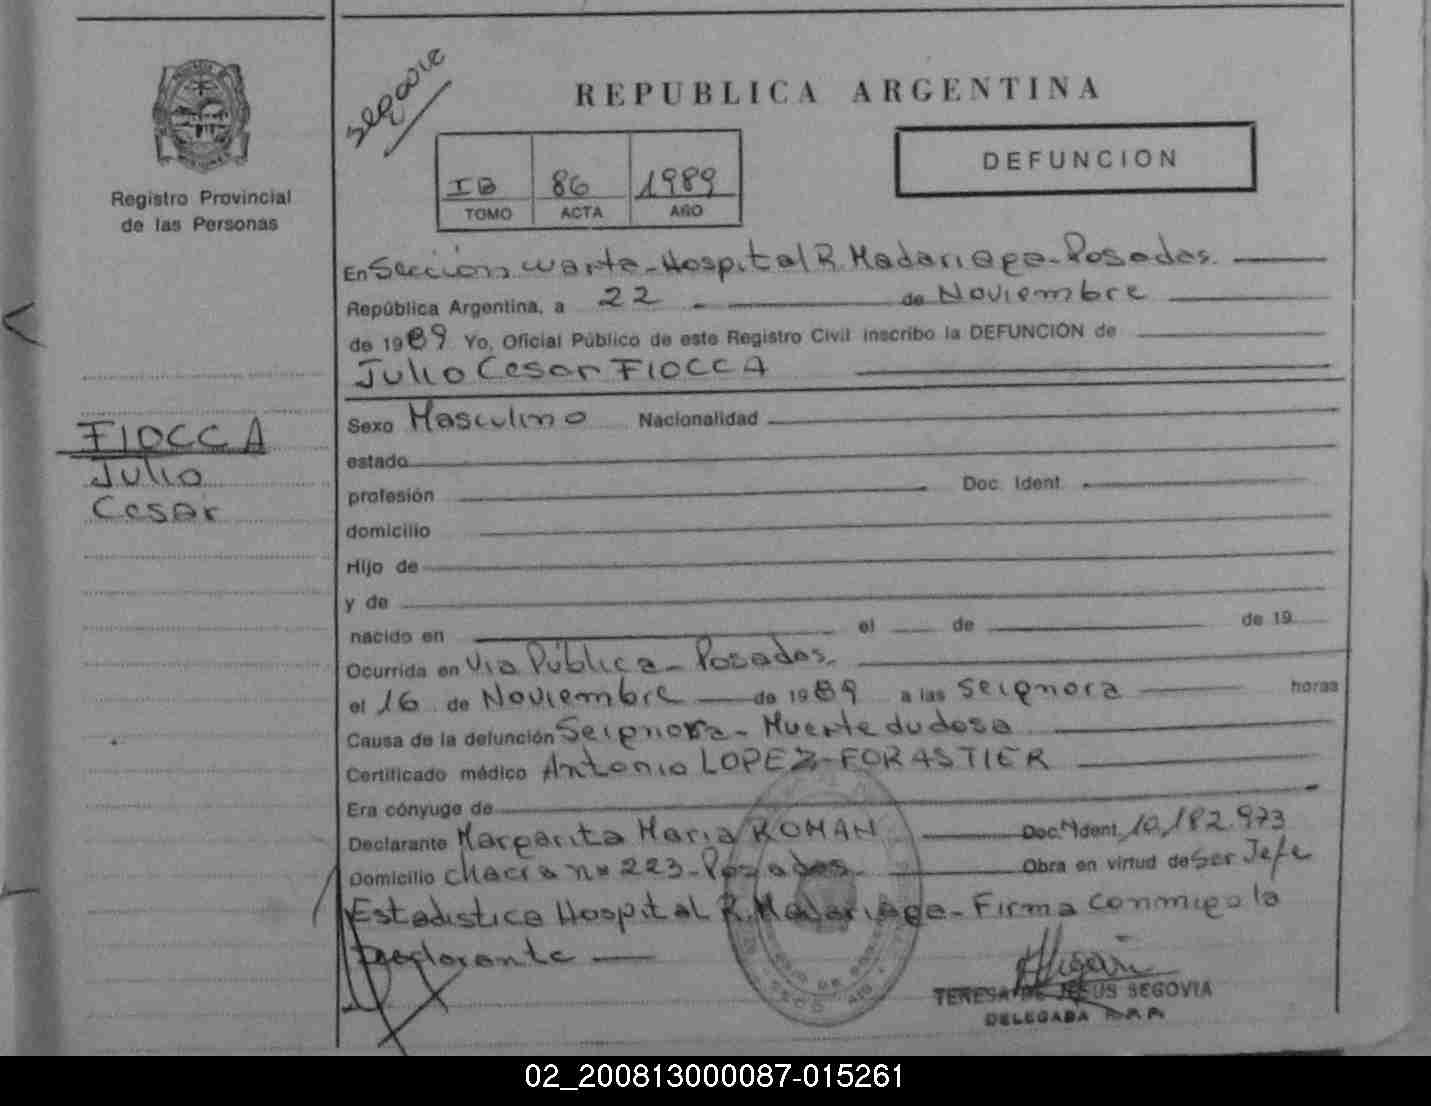 Segovia
REPUBLICA ARGENTINA
DEFUNCION
IB 86 1989
TOMO ACTA AÑO
Registro Provincial
de las Personas
En Sección warta - Hospital R. Madariaga - Posadas.
República Argentina, a 22 de Noviembre
de 1989 Yo, Oficial Público de este Registro Civil inscribo la DEFUNCION de
Julio Cesar FIOCCA
FIOCCA
Julio
Cesar
Sexo Masculino Nacionalidad
estado
profesión Doc. Ident.
domicilio
Hijo de
y de
nacido en el de de 19
Ocurrida en Via Pública - Posadas.
el 16 de Noviembre de 1989 a las se ignora horas
Causa de la defunción Se ignora - Muerte dudosa
Certificado médico Antonio LOPEZ-FORASTIER
Era cónyuge de
Declarante Margarita Maria ROMAN Doc. Ident. 10.182.973
Domicilio chacra nº 223 - Posadas - Obra en virtud de Ser Jefe
Estadistica Hospital R. Madariaga - Firma conmigo la
Declarante
TERESA DE JESUS SEGOVIA
DELEGADA
02_200813000087-015261